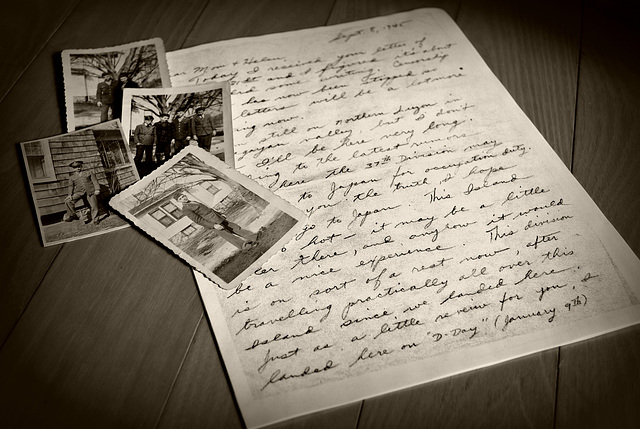 Sept. 8, 1945
Mom & Helen,
Today I received your letter of
and it
here some writing. Censorship
has now been stopped so
letters will be a lot more
ing now.
still on Northern Luzon in
gayan valley, but I don't
I'll be here very long.
ing to the latest rumors
here the 37th Division may
to Japan for occupation duty.
you the truth I hope
go to Japan. This Island
hot - it may be a little
ler there, and anyhow it would
be a nice experience. This division
is on sort of a rest now, after
travelling practically all over this
Island since we landed here.
Just as a little review for you, I
landed here on "D-Day" (January 9th)